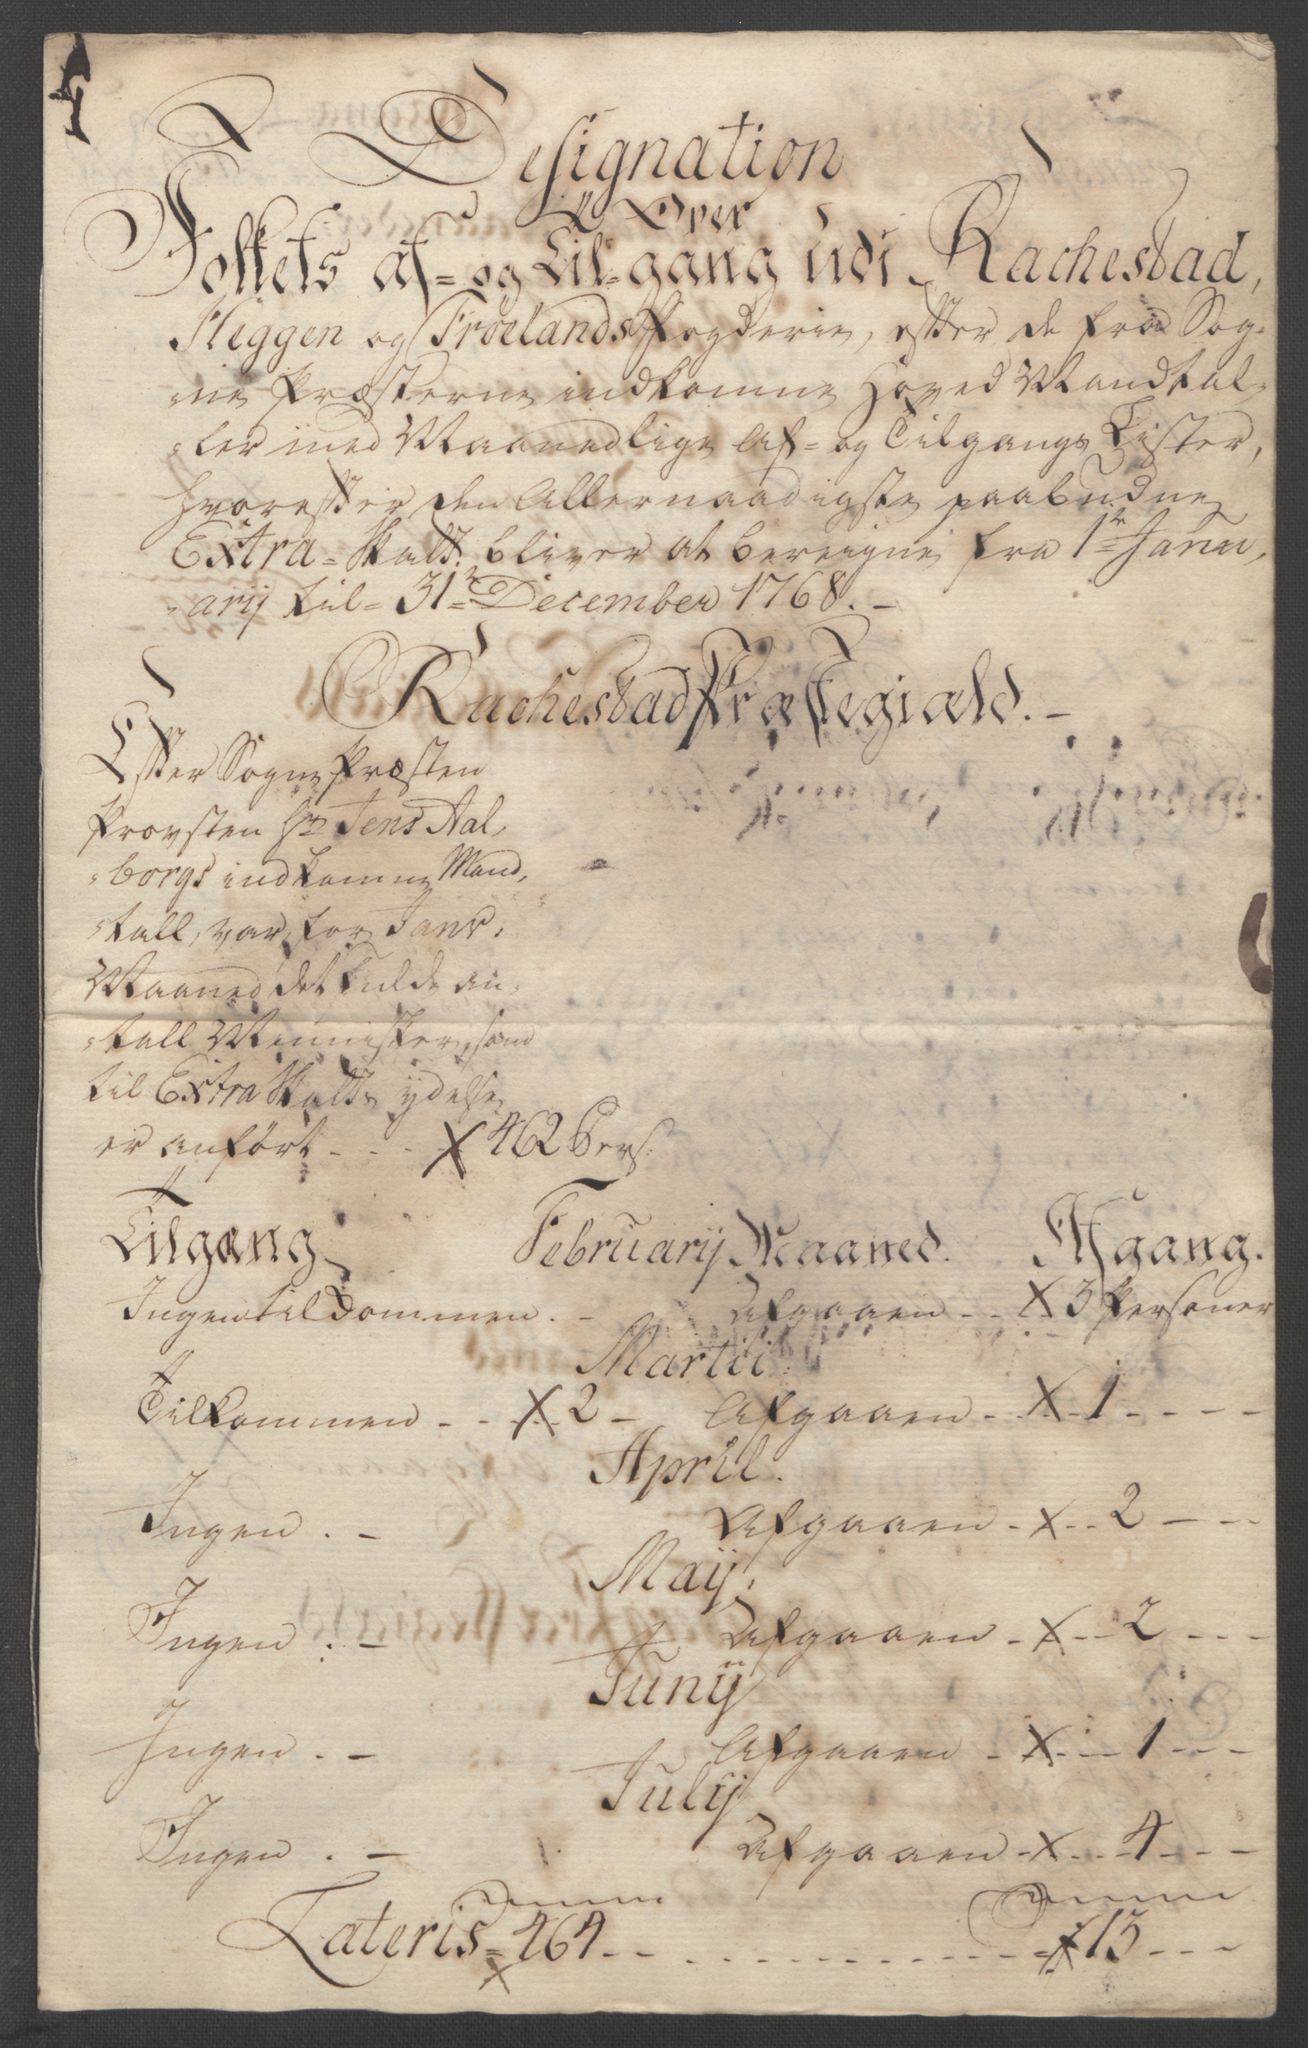 Designation
Over
Folkets af- og Til-gang udi Rachestad,
Heggen og Frøelands Fogderie, efter de fra Sog-
ne Præsterne indkomne Hoved Mandtal-
ler med Maanedlige Af- og Tilgangs Lister,
hvorefter den Allernaadigste paabudne
Extra-Skatt bliver at bereigne fra 1te Janu-
arij til 31te December 1768.
Rachestad Præstegiæld.
Efter Sogne Præsten
Provsten Hr Jens Aal-
borgs indkomne Mand-
tall, var for Janr:
Maaned det fulde an-
tall Mennisker, som
til Extra Skatts ydelse
er anført - - - x 462 Pers:
Tilgang Februarij Maaned. Afgang.
Ingen tilkommen. - Afgaaen - - x 3 Personer
Martii.
Tilkommen - - x 2 - Afgaaen - x 1 - - - -
April.
Ingen . - Afgaaen - x - - 2 - - -
Maij.
Ingen . - Afgaaen - x - - 2 - - -
Junij
Ingen . - Afgaaen - x - - 1 - - -
Julij
Ingen . - Afgaaen - x - - 4 - - -
Lateris = x 464 - - - - - - - - - x 13 - - -